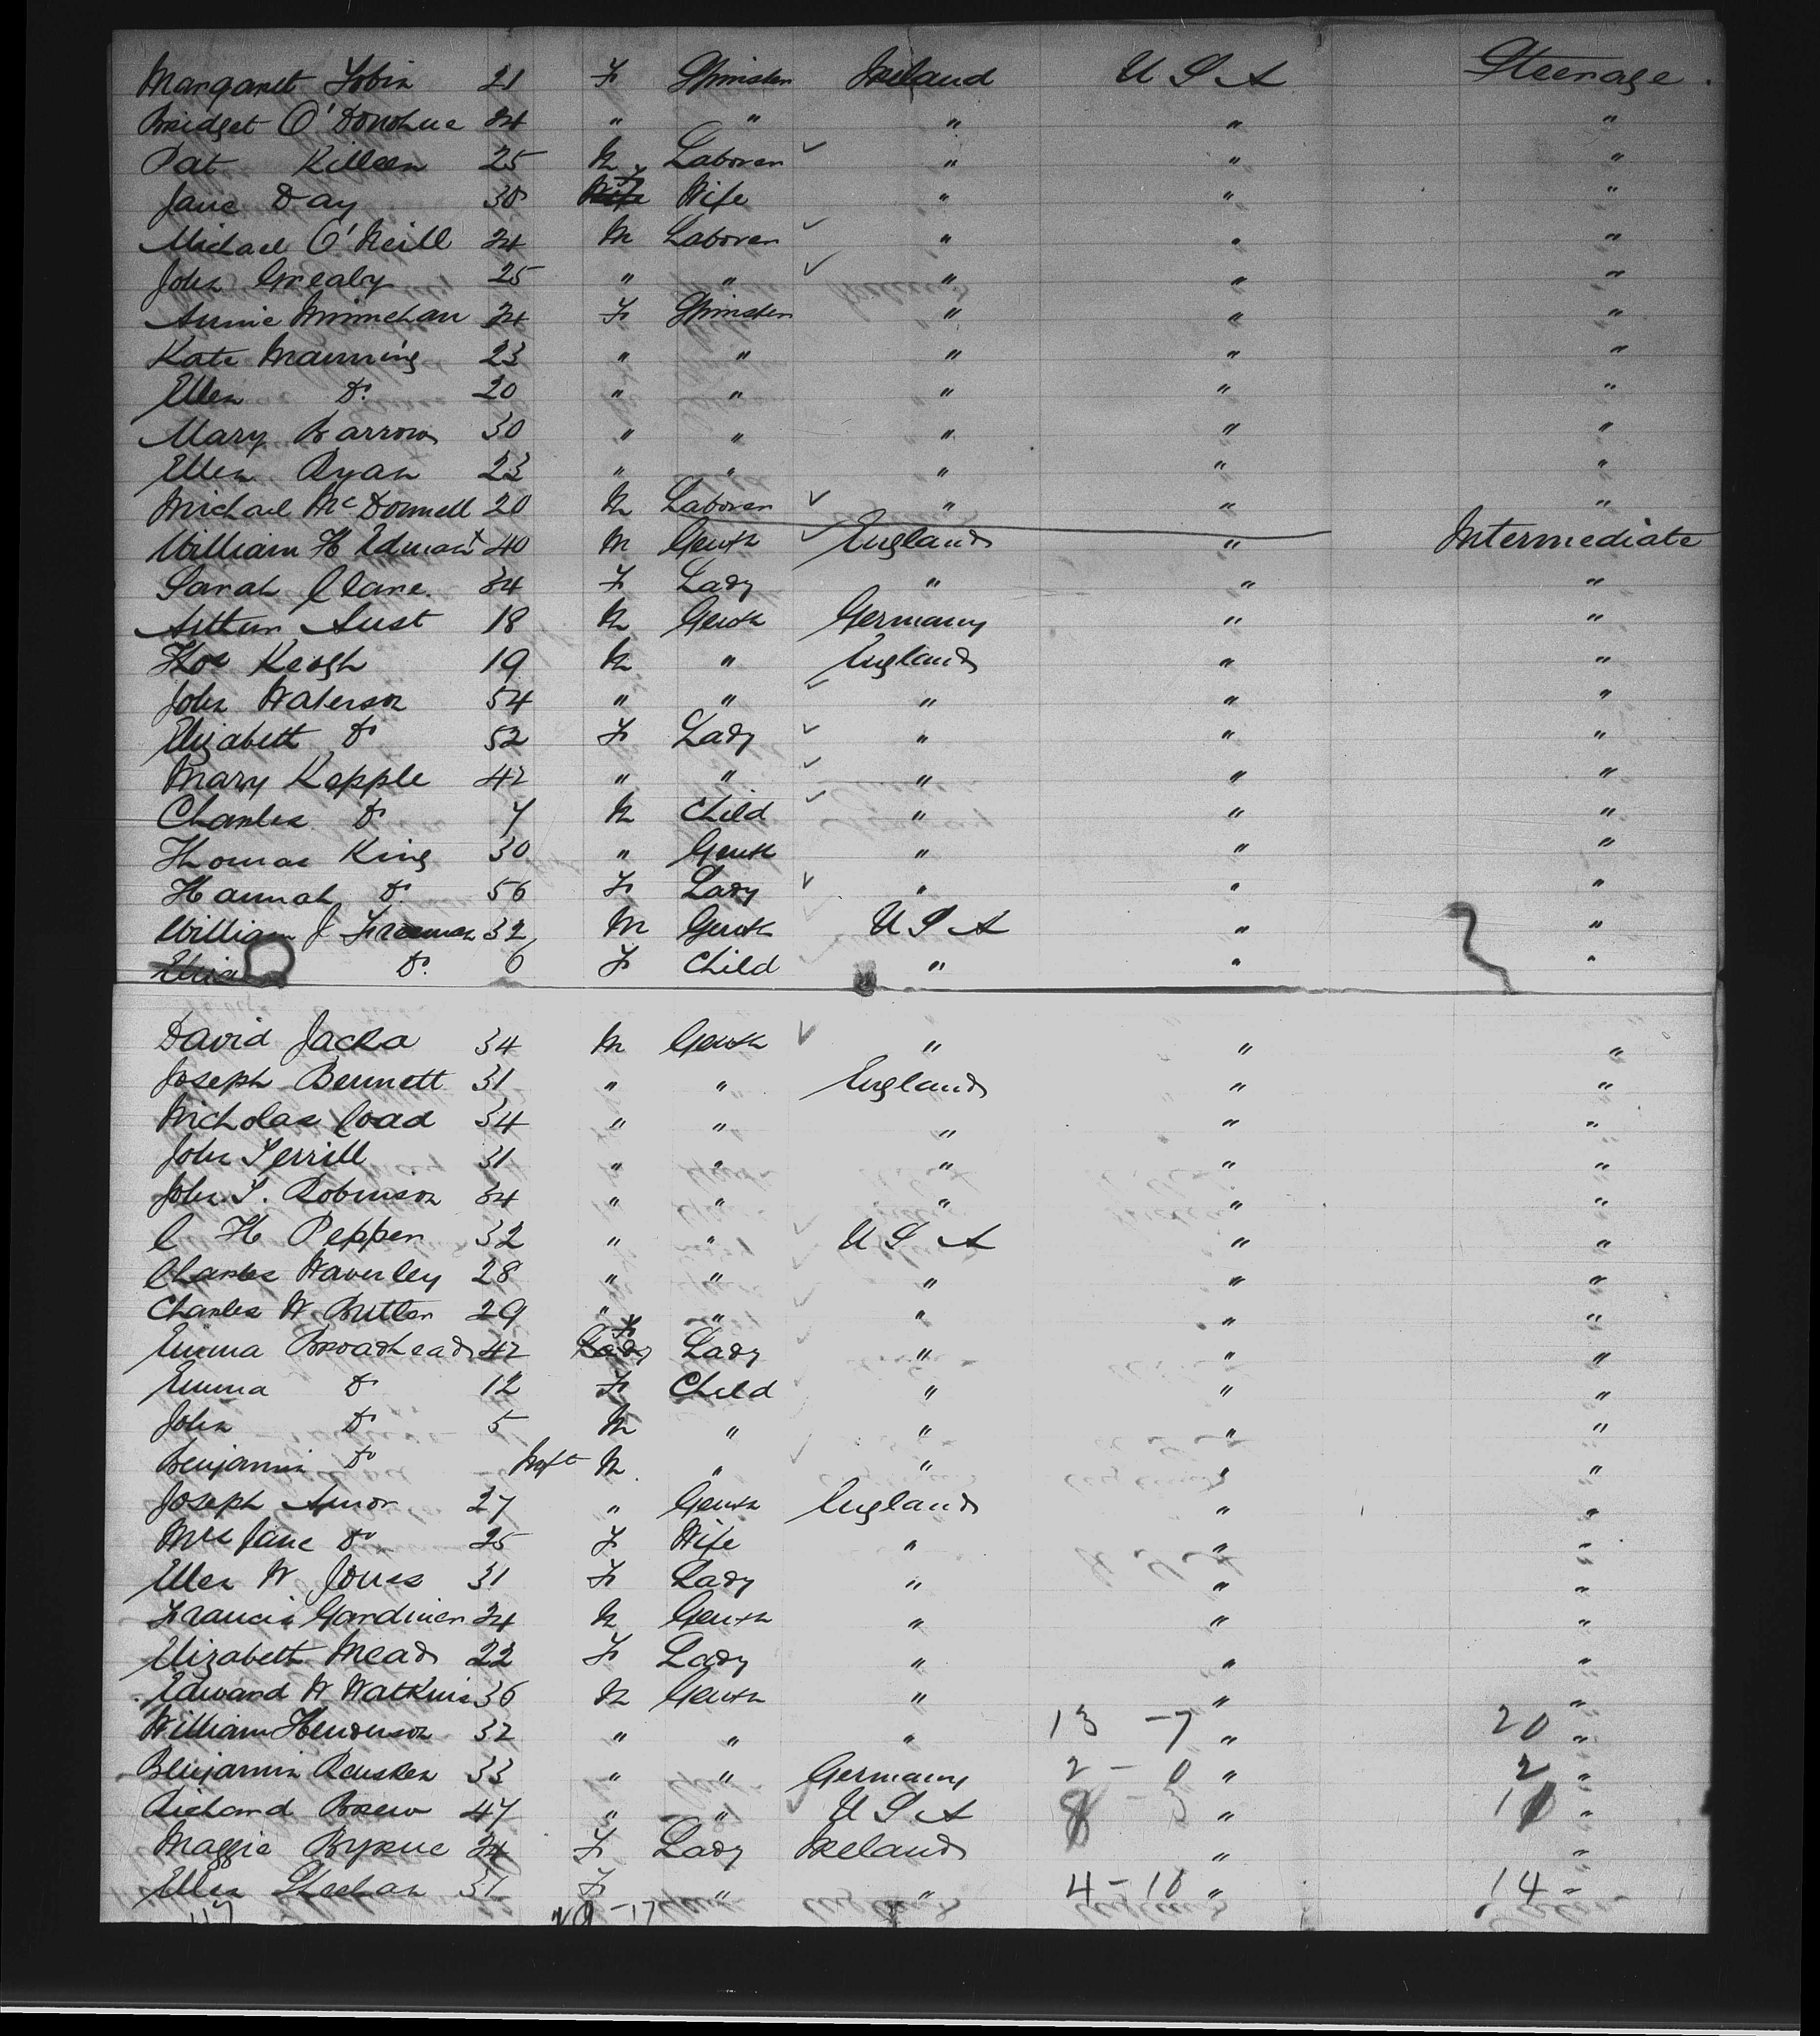 Margaret Tobin 21 F Spinster Ireland U S A Steerage
Bridget O'Donohue 24 " " " " "
Pat Killeen 25 M Laborer ✓ " " "
Jane Day 30 F Wife " " "
Michael O'Neill 24 M Laborer ✓ " " "
John Grealy 25 " " ✓ " " "
Annie Minnehan 24 F Spinster " " "
Kate Manning 23 " " " " "
Ellen Do 20 " " " " "
Mary Barrow 30 " " " " "
Ellen Ryan 23 " " " " "
Michael McDonnell 20 M Laborer ✓ " " "
William H 40 M Gentn ✓ England " Intermediate
Sarah Clare 34 F Lady " " "
Arthur Aust 18 M Gentn Germany " "
Thos Keogh 19 M " England " "
John Waterson 54 " " ✓ " " "
Elizabeth Do 52 F Lady ✓ " " "
Mary Kepple 42 " " ✓ " " "
Charles Do 7 M Child ✓ " " "
Thomas King 30 " Gentn " " "
Hannah Do 56 F Lady ✓ " " "
William J Freeman 32 M Gentn U S A " "
Do 6 F Child " " "
David Jacka 34 M Gentn ✓ " " "
Joseph Bennett 31 " " England " "
Nicholas Coad 34 " " " " "
John Serrill 31 " " " " "
John S. Robinson 34 " " " " "
C H Pepper 32 " " U S A " "
Charles Waverley 28 " " " " "
Charles W Butler 29 " " " " "
Emma Broadhead 42 F Lady " " "
Emma Do 12 F Child " " "
John Do 5 M " " " "
Benjamin Do Inft M " " " "
Joseph Amor 27 " Gentn England " "
Mrs Jane Do 25 F Wife " " "
Ellen W Jones 31 F Lady " " "
Francis Gardiner 24 M Gentn " " "
Elizabeth Mead 22 F Lady " " "
Edward W Watkins 36 M Gentn " " "
William Henderson 32 " " " 13 - 7 " 20 "
Benjamin Reusken 33 " " Germany 2 - 0 " 2 "
Richard Brew 47 " " U S A 8 - 3 " 11 "
Maggie Byrne 24 F Lady Ireland " "
Ellen Sheehan 31 F " " 4 - 10 " 14 "
117